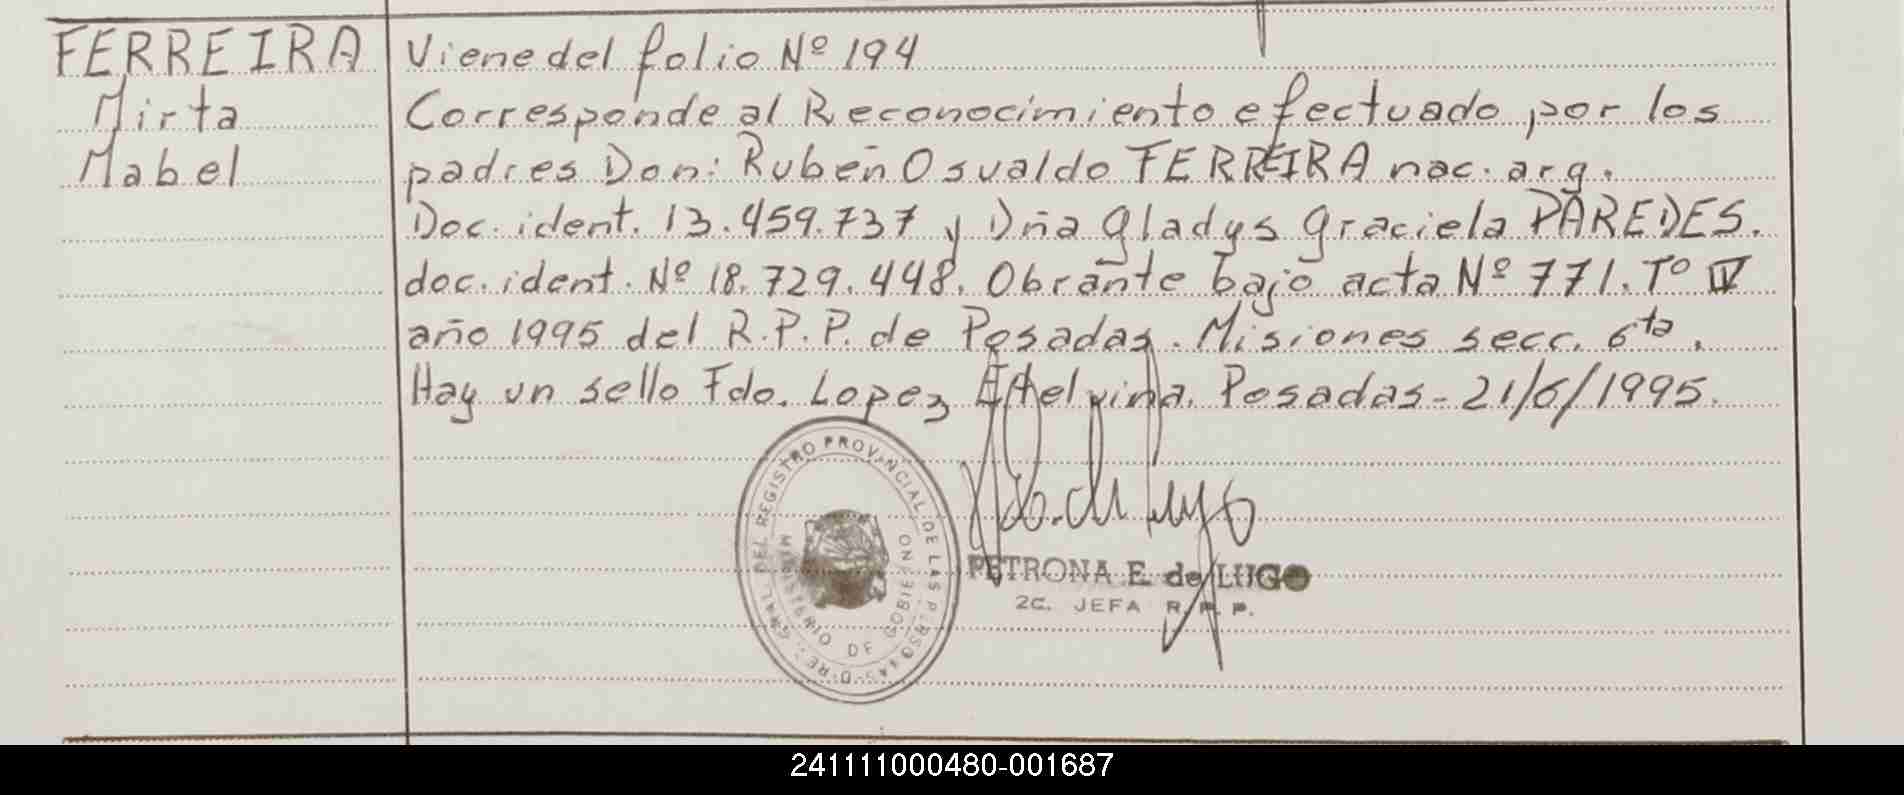 FERREIRA
Mirta
Mabel
Viene del folio Nº 194
Corresponde al Reconocimiento efectuado por los
padres Don: Rubén Osvaldo FERREIRA nac. arg.
Doc. ident. 13.459.737 y Dña Gladys Graciela PAREDES.
doc. ident. Nº 18.729.448. Obrante bajo acta Nº 771. Tº IV
año 1995 del R.P.P. de Posadas. Misiones secc. 6ta.
Hay un sello Fdo. Lopez Etelvina. Posadas - 21/6/1995.
REGISTRO PROVINCIAL DE LAS PERSONAS
MINISTERIO DE GOBIERNO
PETRONA E. de LUGO
2C. JEFA R.P.P.
241111000480-001687